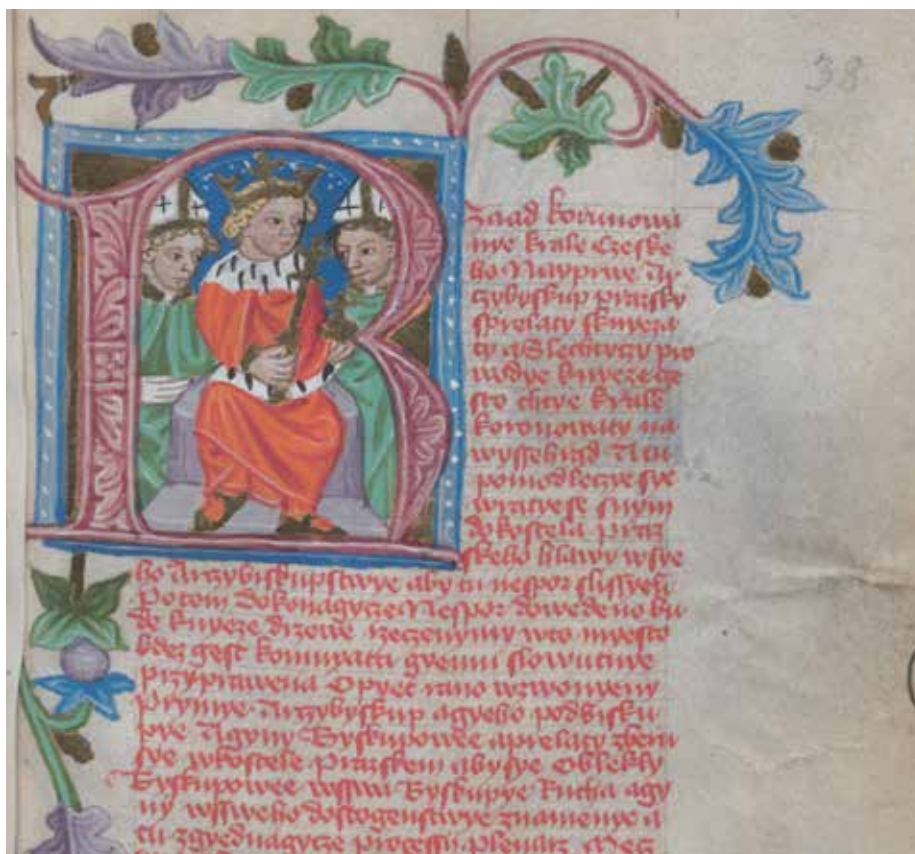 38
R
zaad korunowa
nye krale czeske
ho Nayprwe Ar
czybyskup prazsky
sprelaty sknyeza
ty a Slechtyczy pro
wodye knyeze ge
sto chtye krale
korunowaty na
wyssehrad A tu
pomodleczye sye
wratye se snym
do kostela praz
skeho hlawy wsye
ho Arczybiskupstwye aby tu nespor slissyeli
Potom dokonagycze Nespor dowedeno bu
de knyeze domow rzeczenymy w to myesto
kdez gest komnata gyemu slowutnye
przyprawena Opyet rano wzwonyeny
Prymye Arczybyskup a gyeho podbisku
pye A gyny Byskupowee a prelaty zberu
sye w kostele Prazskem abysye oblekly
Byskupowee wssyi Byskupye Rucha a gy
ny wssweho dostogenstwye znamenye a
tu zgyednagycze processy plenarz Mecz